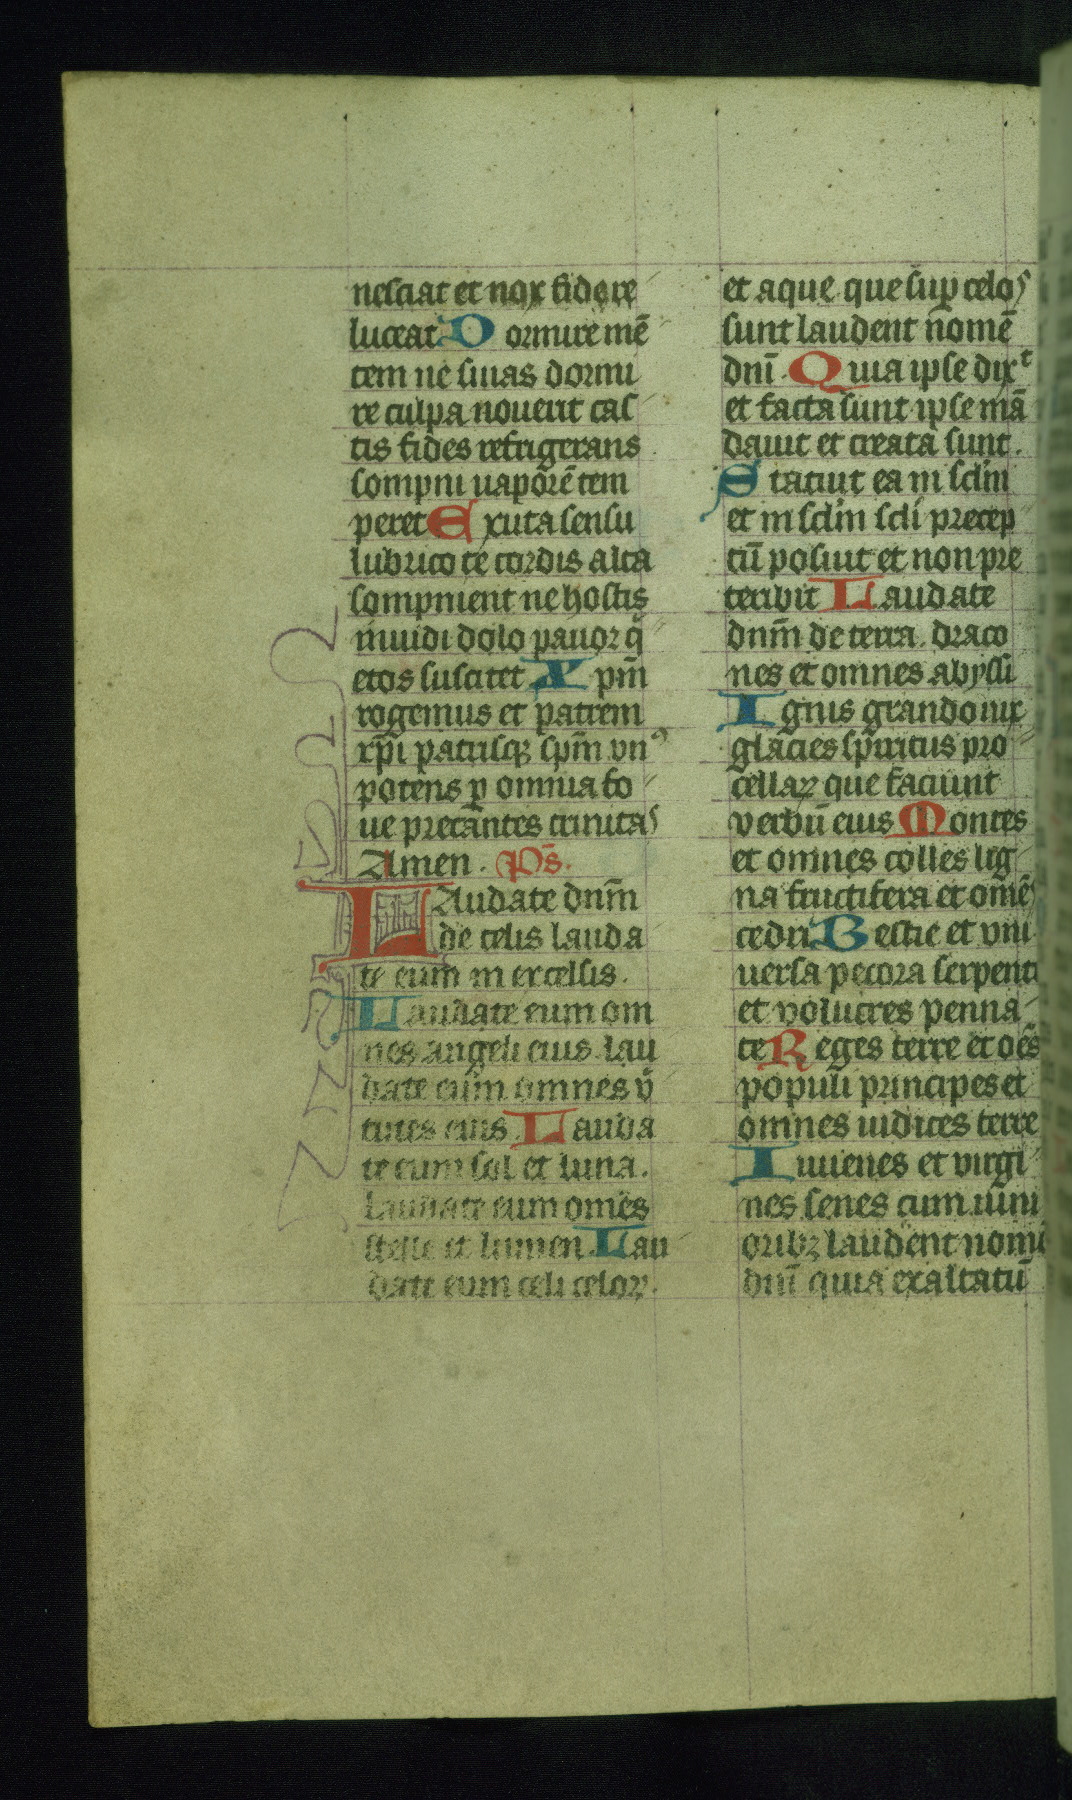 nesciat et nox fidere
luceat Dormire mē
tem ne sinas dormi
re culpa noverit cas
tis fides refrigerans
sompni vaporē tem
peret Exuta sensu
lubrico te cordis alta
sompnient ne hostis
invidi dolo pavor q
etos suscitet Xpm̄
rogemus et patrem
xp̄i patrisqꝫ sp̄m vn⁹
potens p omnia fo
ve precantes trinitas
Amen. Ps̄.
LAudate dnm̄
de celis lauda
te eum in excelsis.
Laudate eum om
nes angeli eius lau
date eum omnes v̄
tutes eius. Lauda
te eum sol et luna.
laudate eum omēs
stelle et lumen. Lau
date eum celi celoꝝ.
et aque que sup celos
sunt laudent nomē
dnī. Quia ipse dixᵗ
et facta sunt ipse mā
davit et creata sunt.
Statuit ea in sclm̄
et in sclm̄ sclī precep
tū posuit et non pre
teribit Laudate
dnm̄ de terra draco
nes et omnes abyssi
Ignis grando nix
glacies spiritus pro
cellaꝝ que faciunt
verbū eius Montes
et omnes colles lig
na fructifera et omēs
cedri Bestie et vni
versa pecora serpent
et volucres penna
te Reges terre et oēs
populi principes et
omnes iudices terre
Iuvenes et virgi
nes senes cum iuni
oribꝫ laudent nomē
dnī quia exaltatū